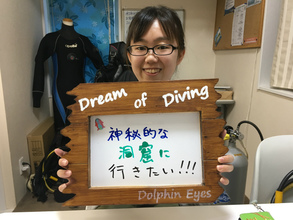 Dream of Diving
神秘的な
洞窟に
行きたい!!!
Dolphin Eyes